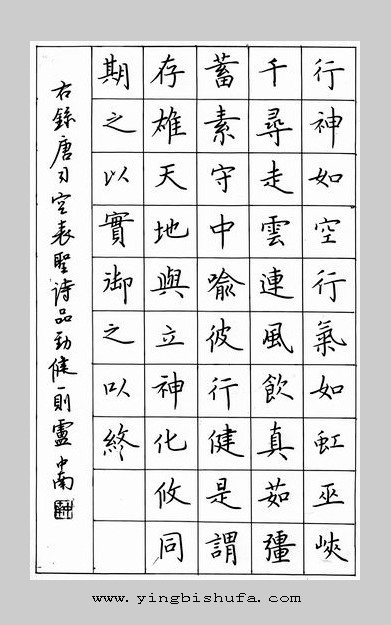 行神如空行氣如虹巫峽
千尋走雲連風飲真茹彊
蓄素守中喻彼行健是謂
存雄天地與立神化攸同
期之以實御之以終
右錄唐司空表聖詩品勁健一則盧中南
www.yingbishufa.com